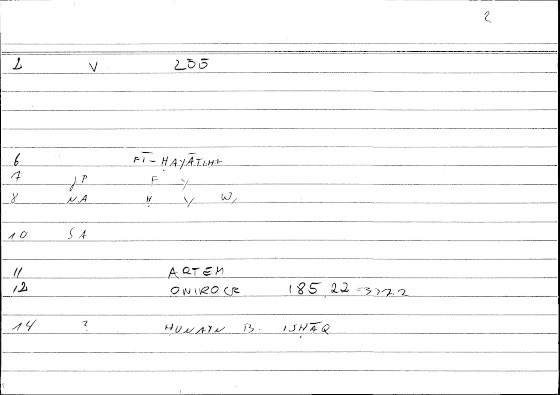 2
1 V 200
6 FĪ-ḤAYĀTIHI
7 JP F Y
8 NA Ḥ Y W,
10 SA
11 ARTEM
12 ONIROCR 185,22
14 ? ḤUNAIN B. ISḤĀQ